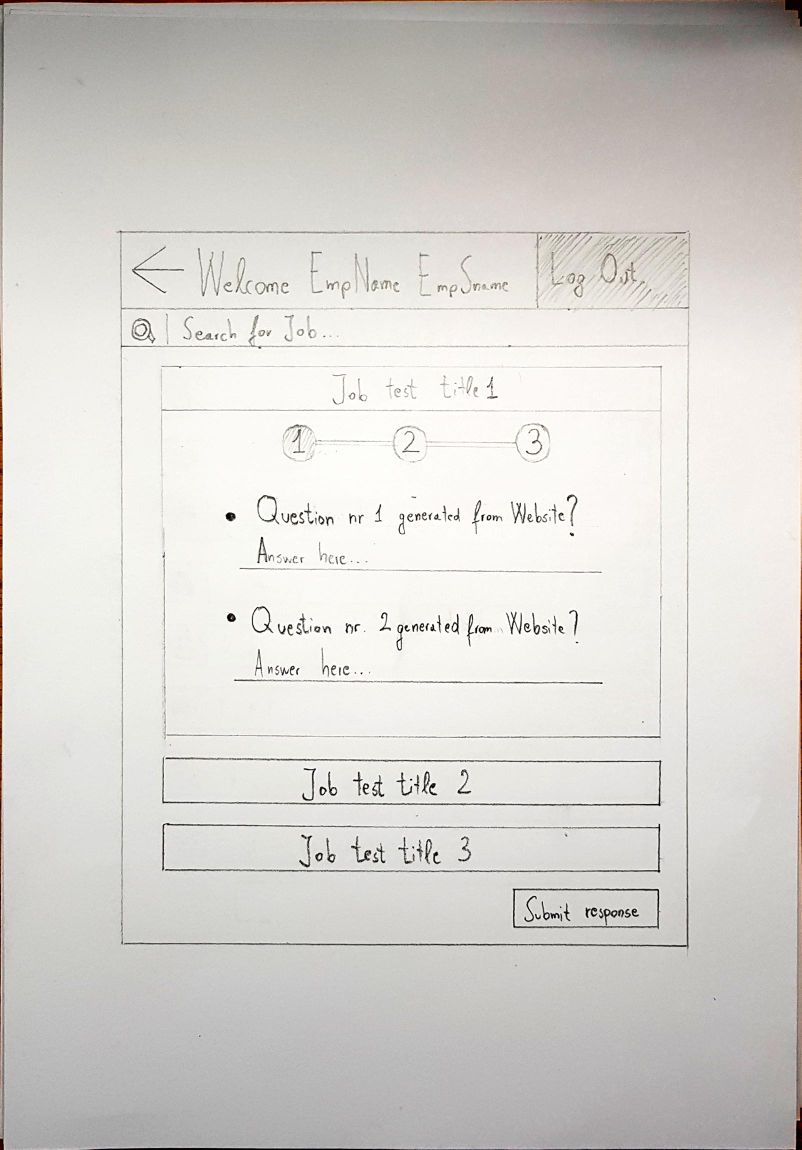 Welcome EmpName EmpSname
Log Out
Search for Job...
Job test title 1
1 2 3
Question nr 1 generated from Website?
Answer here...
Question nr. 2 generated from Website?
Answer here...
Job test title 2
Job test title 3
Submit response